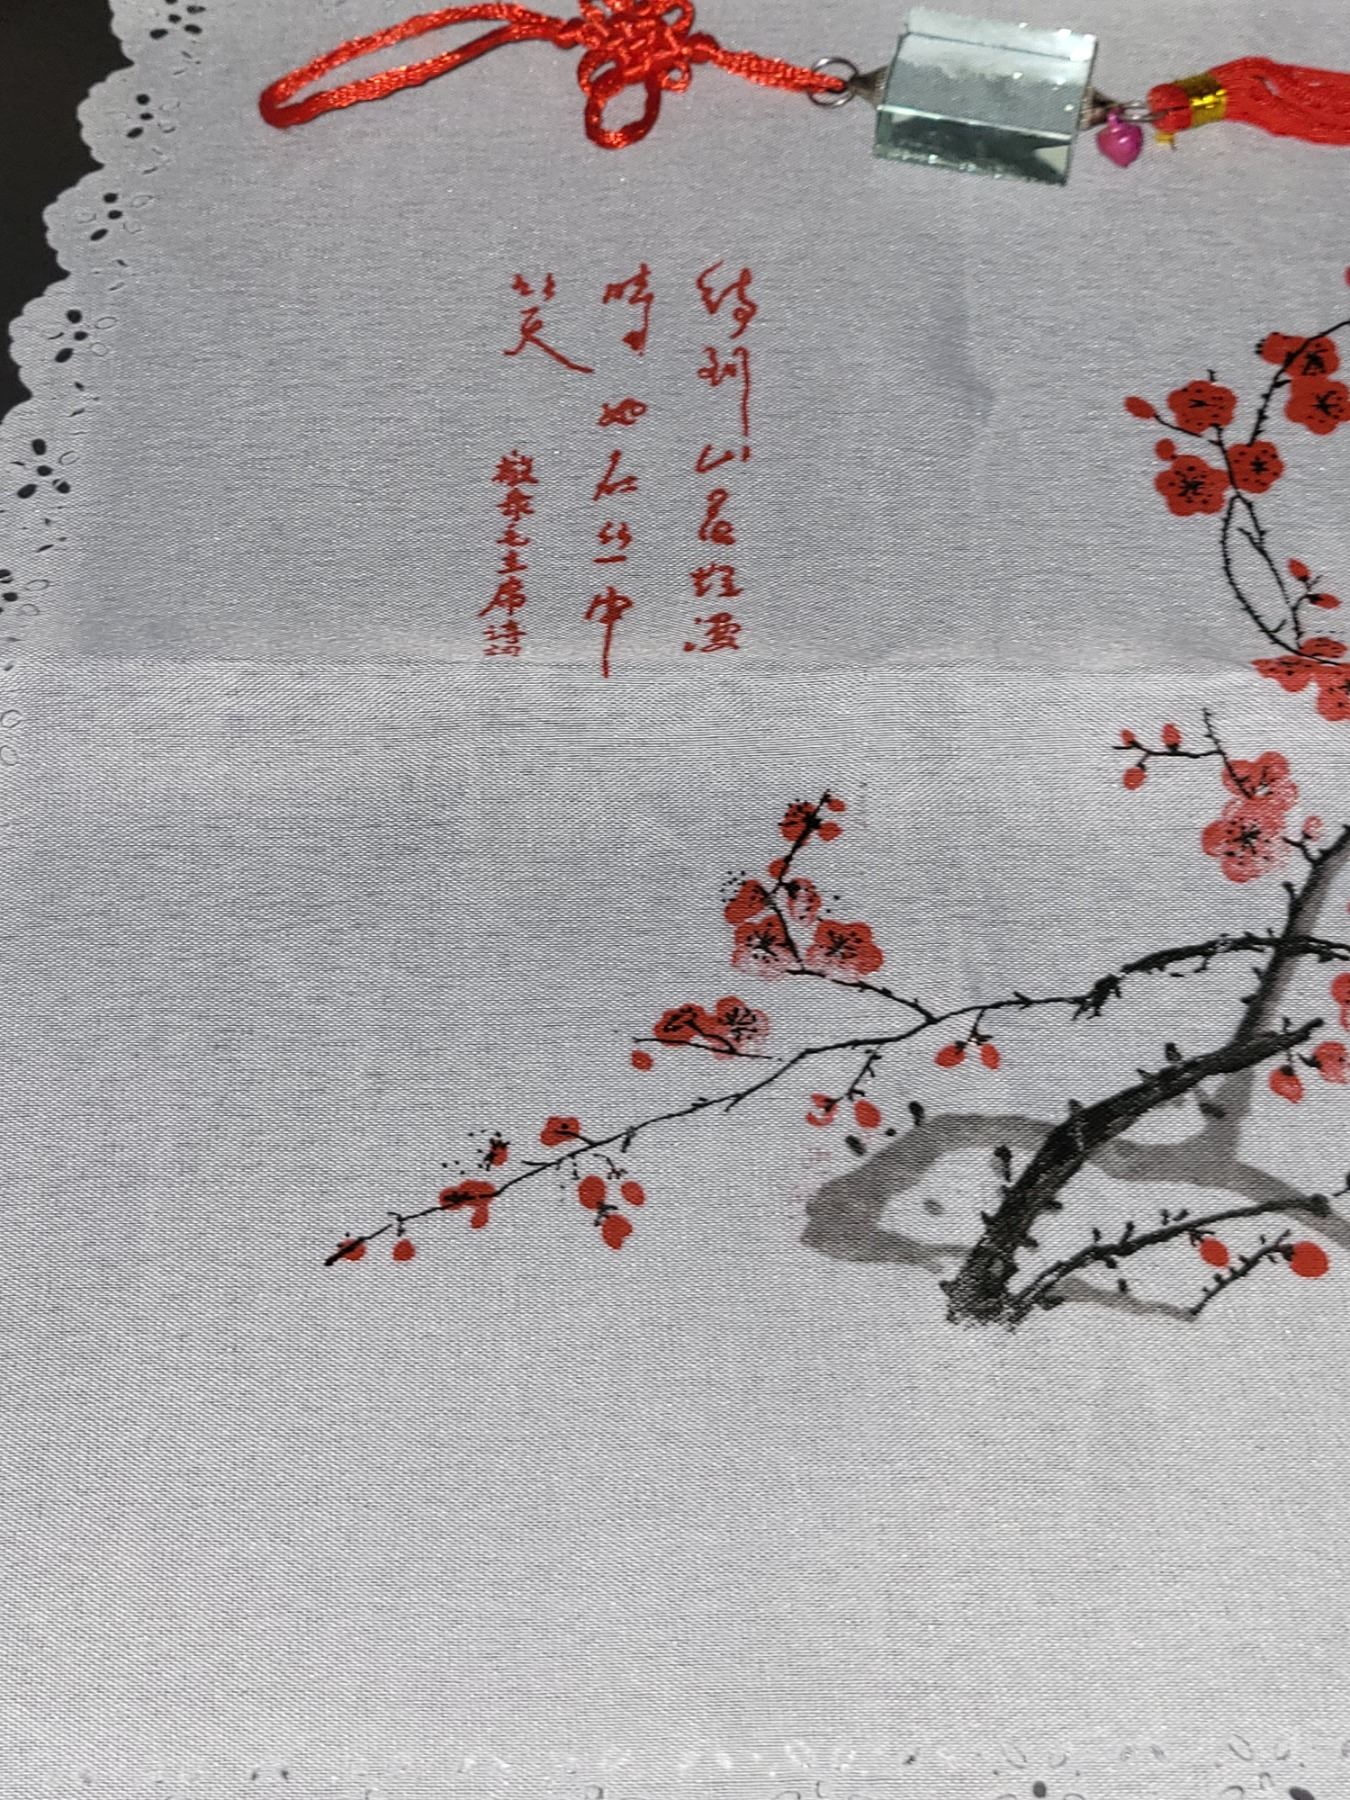 待到山花烂漫
时她在丛中
笑
敬录毛主席诗词